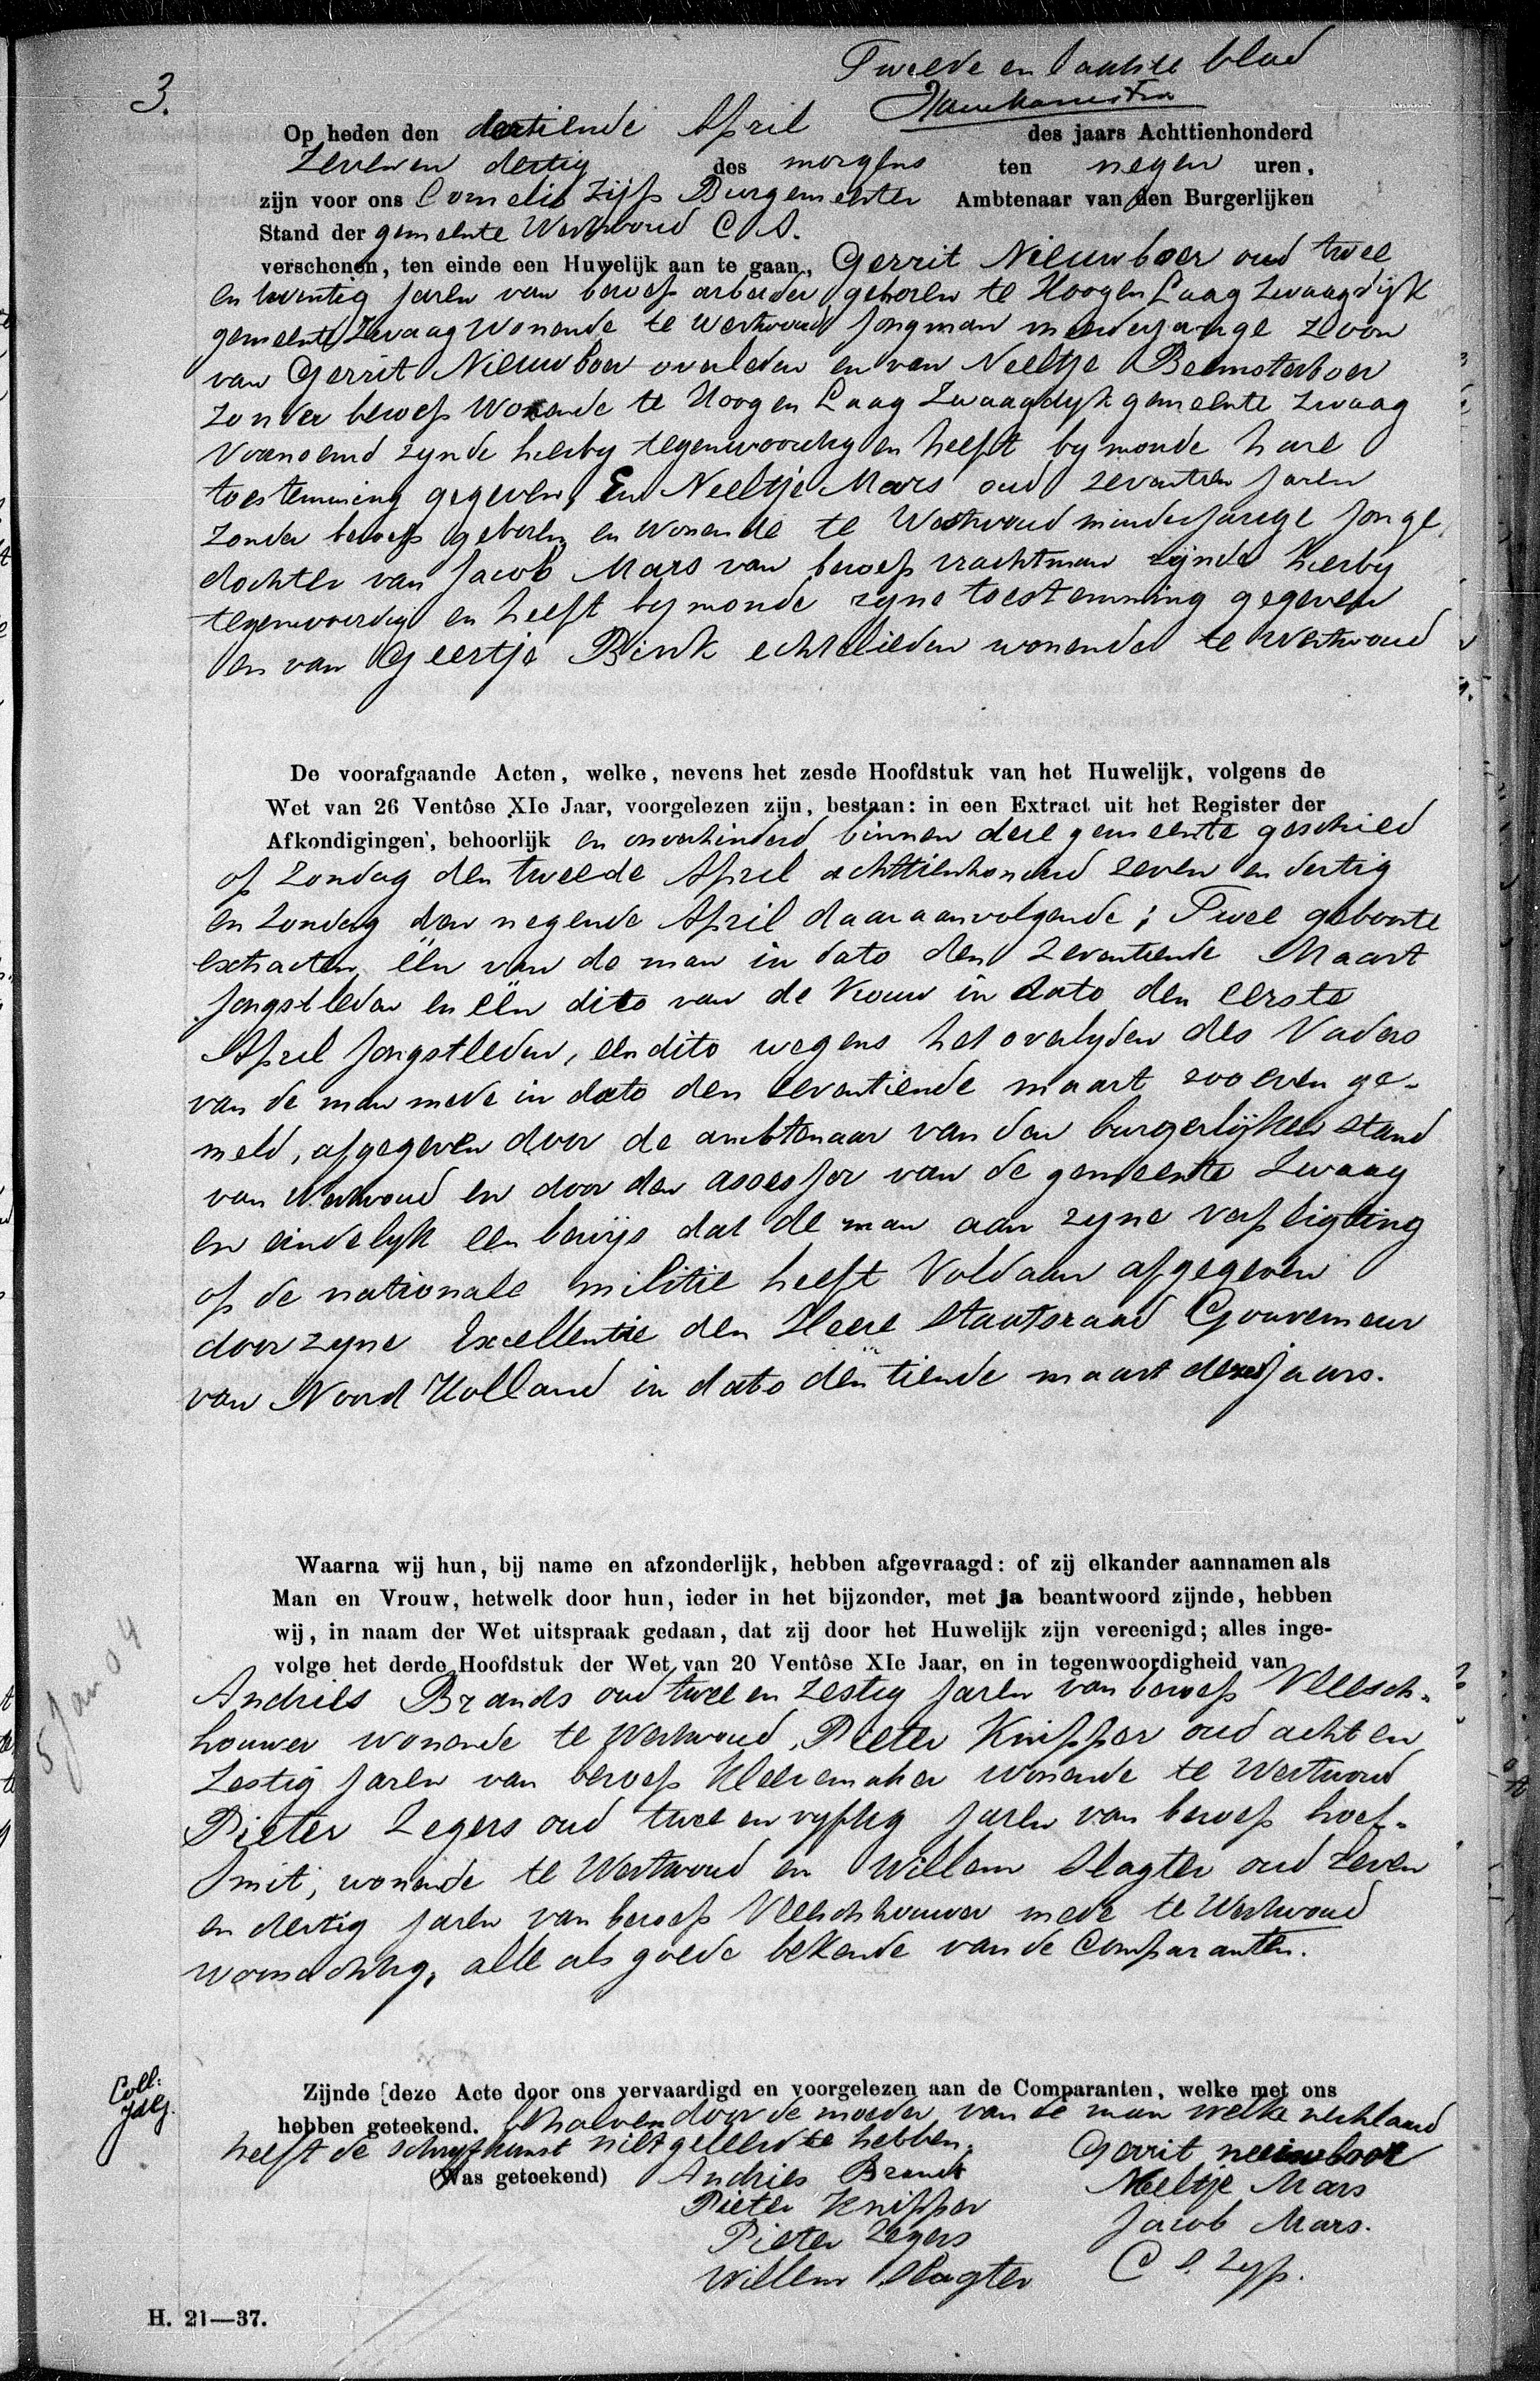 Tweede en laatste blad
3.
Op heden den dertiende April des jaars Achttienhonderd
zeven en dertig des morgens ten negen uren,
zijn voor ons Cornelis Zijp Burgemeester Ambtenaar van den Burgerlijken
Stand der gemeente Westwoud C A.
verschenen, ten einde een Huwelijk aan te gaan, Gerrit Nieuwboer oud twee
en twintig jaren van beroep arbeider geboren te Hoog en Laag Zwaagdijk
gemeente Zwaag Wonende te Westwoud jongman meerderjarige zoon
van Gerrit Nieuwboer overleden en van Neeltje Beemsterboer
zonder beroep Wonende te Hoog en Laag Zwaagdyk gemeente Zwaag
Voornoemd zynde hierby tegenwoordig en heeft by monde hare
toestemming gegeven, En Neeltje Mars oud zeventien jaren
zonder beroep geboren en Wonende te Westwoud minderjarige jonge
dochter van Jacob Mars van beroep vrachtman zijnde hierby
tegenwoordig en heeft by monde zyne toestemming gegeven
en van Geertje Bink echtelieden wonende te Westwoud
De voorafgaande Acten, welke, nevens het zesde Hoofdstuk van het Huwelijk, volgens de
Wet van 26 Ventôse XIe Jaar, voorgelezen zijn, bestaan: in een Extract uit het Register der
Afkondigingen, behoorlijk en onverhinderd binnen deze gemeente geschied
op Zondag den tweede April achttienhonderd zeven en dertig
en Zondag den negende April daaraanvolgende; Twee geboorte
extracten, één van de man in dato den zeventiende Maart
jongstleden en één dito van de Vrouw in dato den eerste
April jongstleden, een dito wegens het overlyden des Vaders
van de man mede in dato den zeventiende maart zoo even ge-
meld, afgegeven door de ambtenaar van den burgerlijken stand
van Westwoud en door den assessor van de gemeente Zwaag
en eindelyk een bewijs dat de man aan zyne verpligting
op de nationale militie heeft Voldaan afgegeven
door zyne Excellentie den Heere Staatsraad Gouverneur
van Noord Holland in dato den tiende maart dezes jaars.
Waarna wij hun, bij name en afzonderlijk, hebben afgevraagd: of zij elkander aannamen als
Man en Vrouw, hetwelk door hun, ieder in het bijzonder, met ja beantwoord zijnde, hebben
wij, in naam der Wet uitspraak gedaan, dat zij door het Huwelijk zijn vereenigd; alles inge-
volge het derde Hoofdstuk der Wet van 20 Ventôse XIe Jaar, en in tegenwoordigheid van
Andries Brands oud twee en zestig jaren van beroep Vleesch-
houwer wonende te Westwoud, Pieter Knipper oud acht en
zestig jaren van beroep Kleermaker wonende te Westwoud
Pieter Zegers oud twee en vyftig jaren van beroep hoef-
smit, wonende te Westwoud en Willem Slagter oud zeven
en dertig jaren van beroep Vleeschhouwer mede te Westwoud
woonachtig, alle als goede bekende van de Comparanten.
5 Jan 04
Coll:
Zijnde deze Acte door ons vervaardigd en voorgelezen aan de Comparanten, welke met ons
hebben geteekend. behalven door de moeder van de man welke verklaard
heeft de schryfkunst niet geleerd te hebben.
Gerrit neeiwboor
(Was geteekend) Andries Brands
Neeltje Mars
Pieter Knipper
Jacob Mars.
Pieter Zegers
C Zyp.
Willem Slagter
H. 21—37.